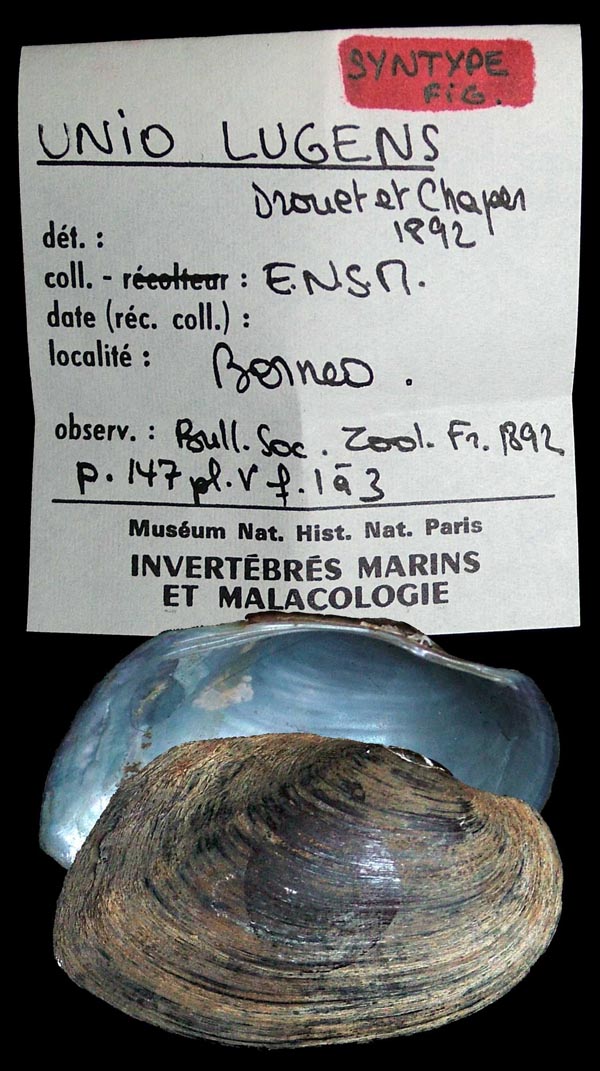 SYNTYPE
FIG.
UNIO LUGENS
Drouet et Chaper
1892
dét. :
coll. - récolteur : E.N.S.M.
date (réc. coll.) :
localité : Borneo .
observ. : Bull. Soc. Zool. Fr. 1892
p. 147 pl. V f. 1 à 3
Muséum Nat. Hist. Nat. Paris
INVERTÉBRÉS MARINS
ET MALACOLOGIE